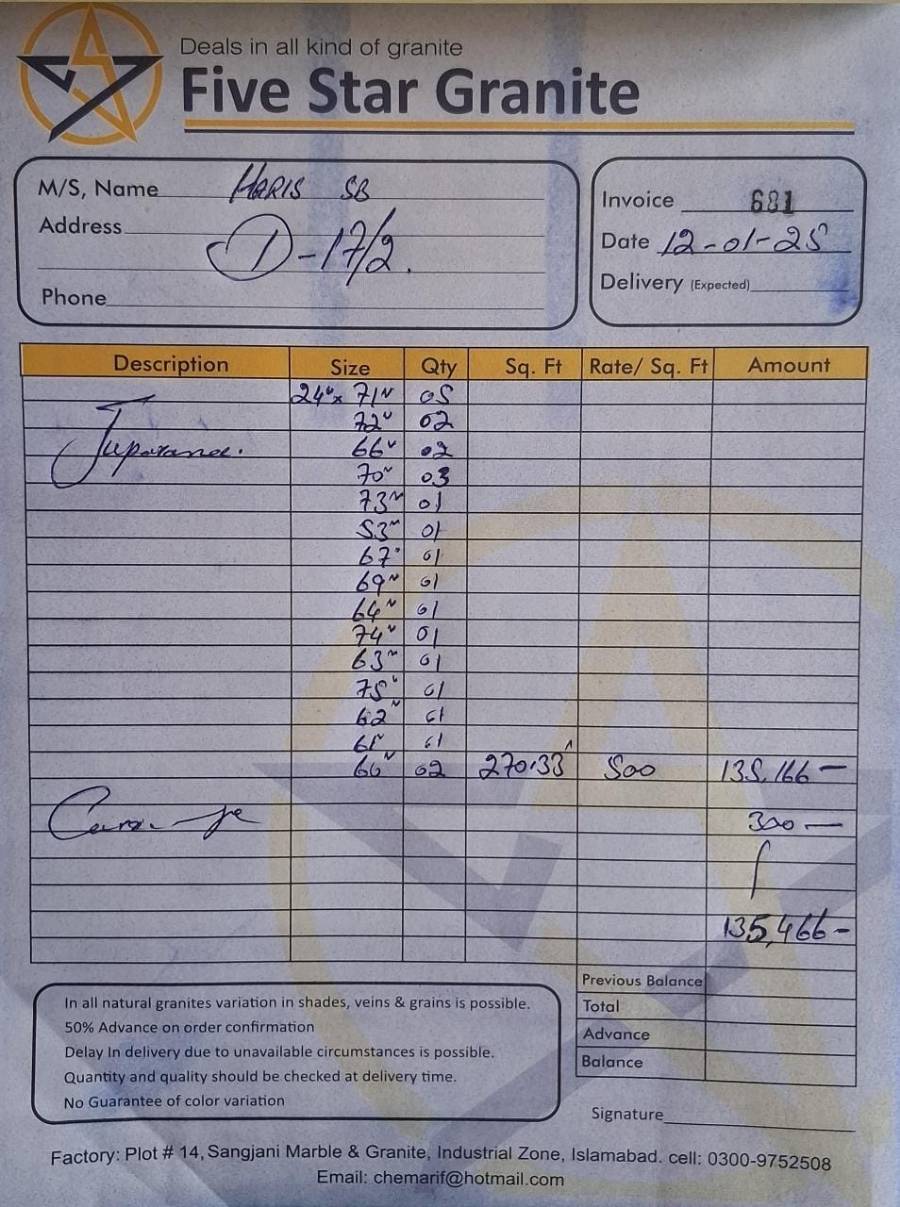 Deals in all kind of granite
Five Star Granite
M/S, Name HARIS SB
Address
D-17/2.
Phone
Invoice 681
Date 12-01-25
Delivery (Expected)
Description Size Qty Sq. Ft Rate/ Sq. Ft Amount
24" x 71" 05
72" 02
Juparana. 66" 02
70" 03
73" 01
53" 01
67" 01
69" 01
64" 01
74" 01
63" 01
75" 01
62" 01
01
66" 02 270.33 500 135,166 –
300 –
135,466 –
Previous Balance
Total
Advance
Balance
In all natural granites variation in shades, veins & grains is possible.
50% Advance on order confirmation
Delay In delivery due to unavailable circumstances is possible.
Quantity and quality should be checked at delivery time.
No Guarantee of color variation
Signature
Factory: Plot # 14, Sangjani Marble & Granite, Industrial Zone, Islamabad. cell: 0300-9752508
Email: chemarif@hotmail.com